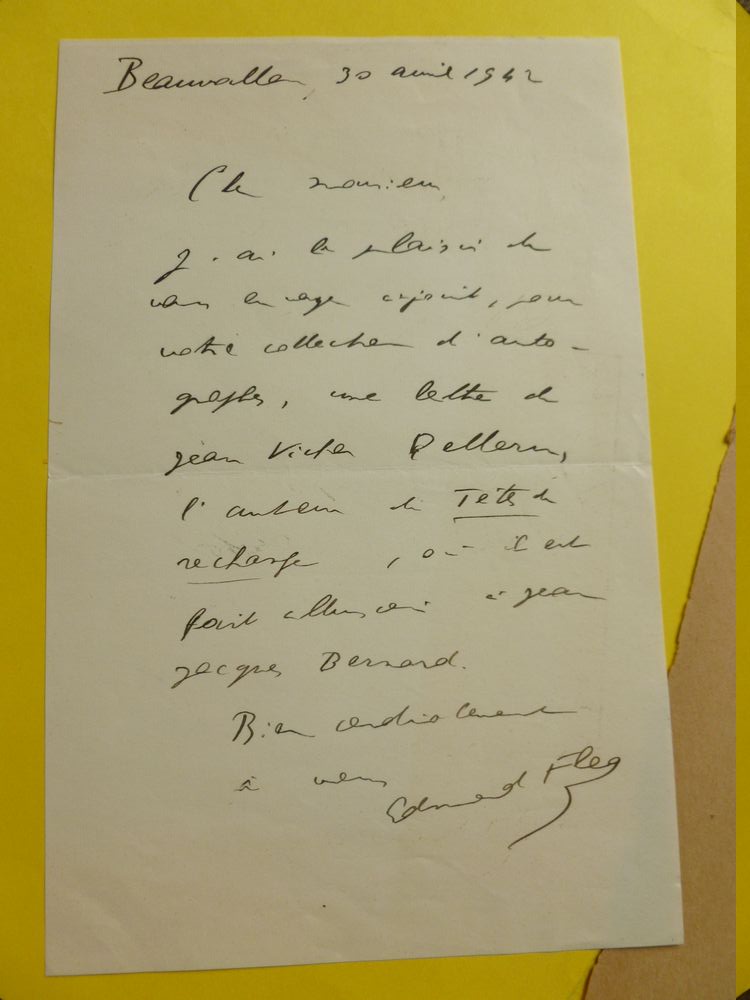 Beauvallon, 30 avril 1942
Cher monsieur,
J'ai le plaisir de
vous envoyer ci-joint, pour
votre collection d'auto-
graphes, une lettre de
Jean Victor Pellerin,
l'auteur de Têtes de
rechange, où il est
fait allusion à Jean
Jacques Bernard.
Bien cordialement
à vous
Edmond Fleg